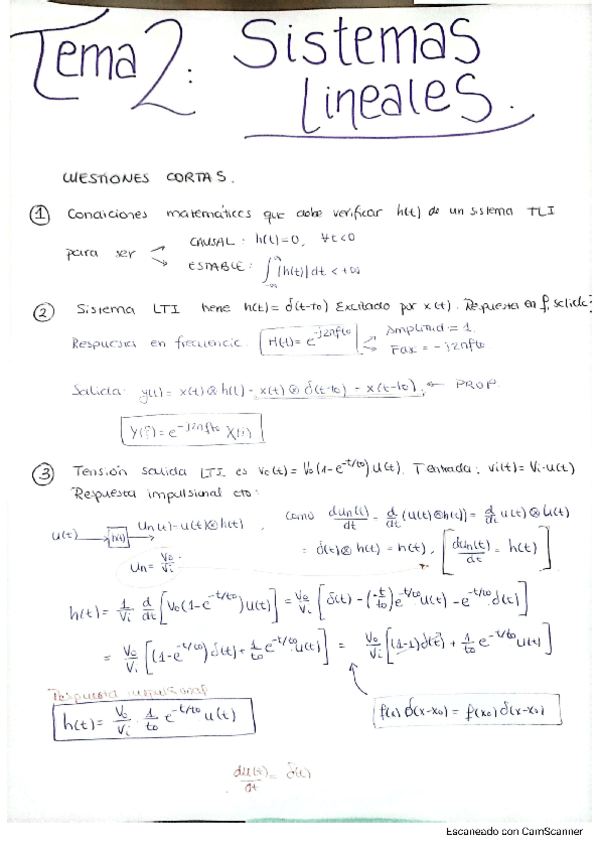 Tema 2: Sistemas
Lineales.
CUESTIONES CORTAS.
① Condiciones matemáticas que debe verificar h(t) de un sistema TLI
para ser → CAUSAL: h(t)=0, ∀t<0
→ ESTABLE: ∫_{-∞}^{∞} |h(t)| dt < +∞
② Sistema LTI tiene h(t) = δ(t-to) Excitado por x(t). Respuesta en f, salida?
Respuesta en frecuencia: H(f) = e^{-j2πfto} → Amplitud = 1.
→ Fase = -j2πfto
Salida: y(t) = x(t) ⊗ h(t) = x(t) ⊗ δ(t-to) = x(t-to), ← PROP.
Y(f) = e^{-j2πfto} X(f)
③ Tensión salida LTI es Vc(t) = Vo(1-e^{-t/to})u(t). T entrada: Vi(t) = Vi·u(t)
Respuesta impulsional cto:
u(t) → h(t) → Un(t) = u(t)⊗h(t), como dun(t)/dt = d/dt (u(t)⊗h(t)) = d/dt u(t) ⊗ h(t)
Un = Vo/Vi = δ(t) ⊗ h(t) = h(t), [dun(t)/dt = h(t)]
h(t) = 1/Vi d/dt [Vo(1-e^{-t/to})u(t)] = Vo/Vi [δ(t) - (-t/to)e^{-t/to}u(t) - e^{-t/to}·δ(t)]
= Vo/Vi [(1-e^{-t/to})δ(t) + 1/to e^{-t/to}·u(t)] = Vo/Vi [(1-1)δ(t) + 1/to e^{-t/to}u(t)]
Respuesta impulsional
h(t) = Vo/Vi · 1/to e^{-t/to} u(t)
f(x) δ(x-xo) = f(xo) δ(x-xo)
du(t)/dt = δ(t)
Escaneado con CamScanner